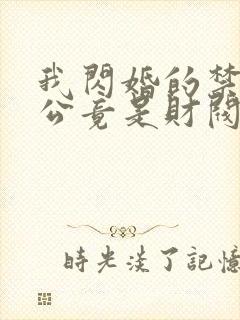 我閃婚的禁
公竟是財閥
時光淡了記憶